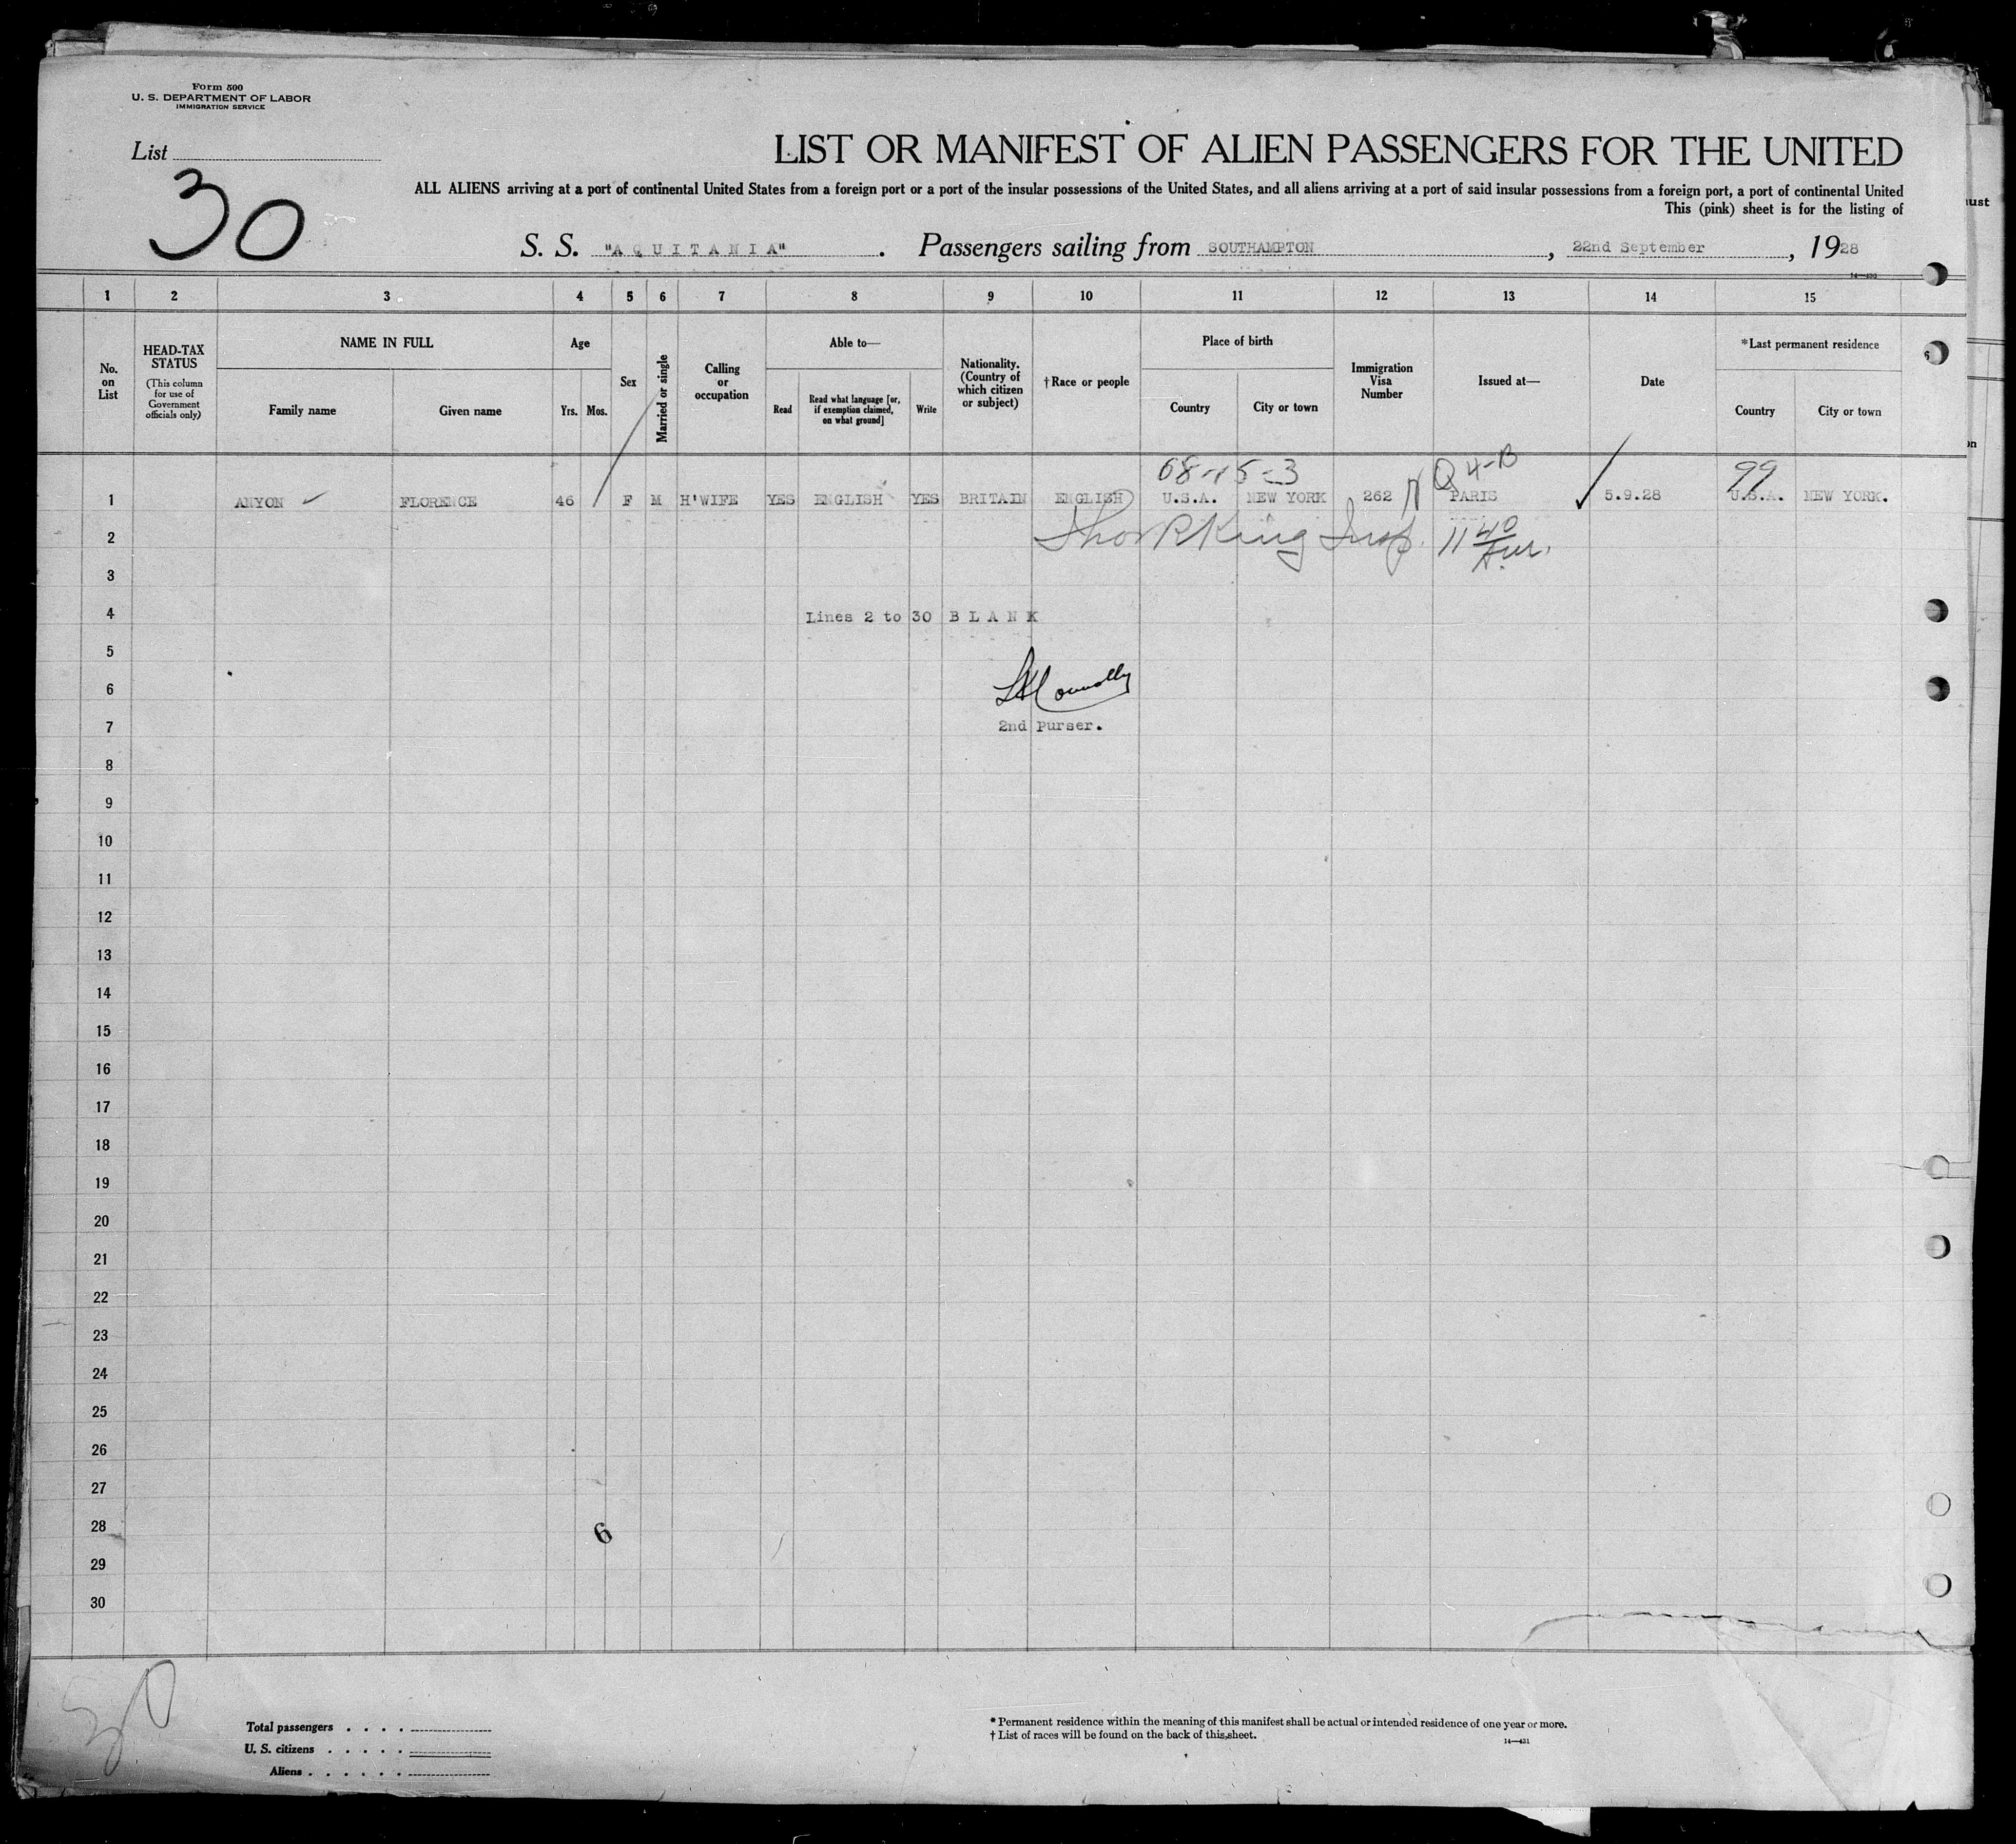 Form 500
U. S. DEPARTMENT OF LABOR
IMMIGRATION SERVICE
List
30
LIST OR MANIFEST OF ALIEN PASSENGERS FOR THE UNITED
ALL ALIENS arriving at a port of continental United States from a foreign port or a port of the insular possessions of the United States, and all aliens arriving at a port of said insular possessions from a foreign port, a port of continental United
This (pink) sheet is for the listing of
S. S. "AQUITANIA". Passengers sailing from SOUTHAMPTON, 22nd September, 1928
1 2 3 4 5 6 7 8 9 10 11 12 13 14 15
No. on List
HEAD-TAX STATUS
(This column for use of Government officials only)
NAME IN FULL
Family name
Given name
Age
Yrs. Mos.
Sex
Married or single
Calling or occupation
Able to—
Read
Read what language [or, if exemption claimed, on what ground]
Write
Nationality. (Country of which citizen or subject)
†Race or people
Place of birth
Country
City or town
Immigration Visa Number
Issued at—
Date
*Last permanent residence
Country
City or town
68-15-3 Q4-B 99
1 ANYON FLORENCE 46 F M H'WIFE YES ENGLISH YES BRITAIN ENGLISH U.S.A. NEW YORK 262 PARIS 5.9.28 U.S.A. NEW YORK.
2 King Insp. 11 40
3
4 Lines 2 to 30 BLANK
5
6 Connolly
7 2nd Purser.
8
9
10
11
12
13
14
15
16
17
18
19
20
21
22
23
24
25
26
27
28 6
29
30
30
Total passengers . . . .
U. S. citizens . . . . .
Aliens . . . . . .
* Permanent residence within the meaning of this manifest shall be actual or intended residence of one year or more.
† List of races will be found on the back of this sheet.
14—431